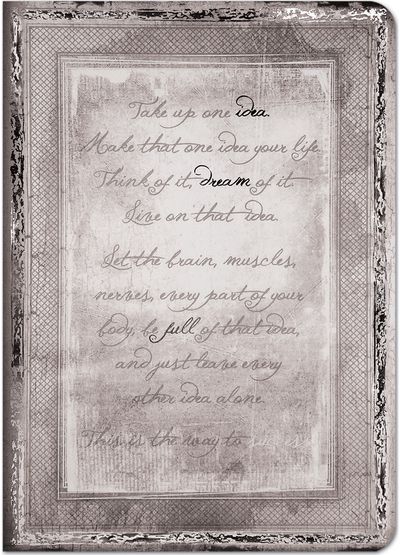 Take up one idea.
Make that one idea your life.
Think of it, dream of it.
Live on that idea.
Let the brain, muscles,
nerves, every part of your
body, be full of that idea,
and just leave every
other idea alone.
This is the way to success